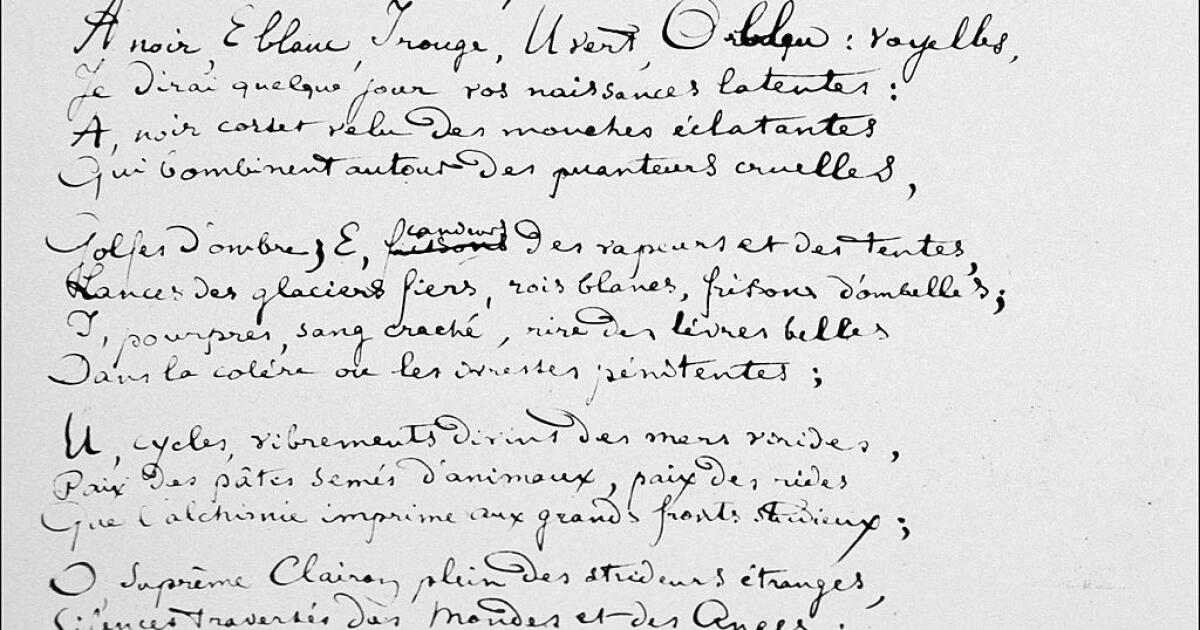 A noir, E blanc, I rouge, U vert, O bleu : voyelles,
Je dirai quelque jour vos naissances latentes :
A, noir corset velu des mouches éclatantes
Qui bombinent autour des puanteurs cruelles,
Golfes d'ombre ; E, frissons candeurs des vapeurs et des tentes,
Lances des glaciers fiers, rois blancs, frissons d'ombelles ;
I, pourpres, sang craché, rire des lèvres belles
Dans la colère ou les ivresses pénitentes ;
U, cycles, vibrements divins des mers virides,
Paix des pâtis semés d'animaux, paix des rides
Que l'alchimie imprime aux grands fronts studieux ;
O, Suprême Clairon plein des strideurs étranges,
Silences traversés des Mondes et des Anges :